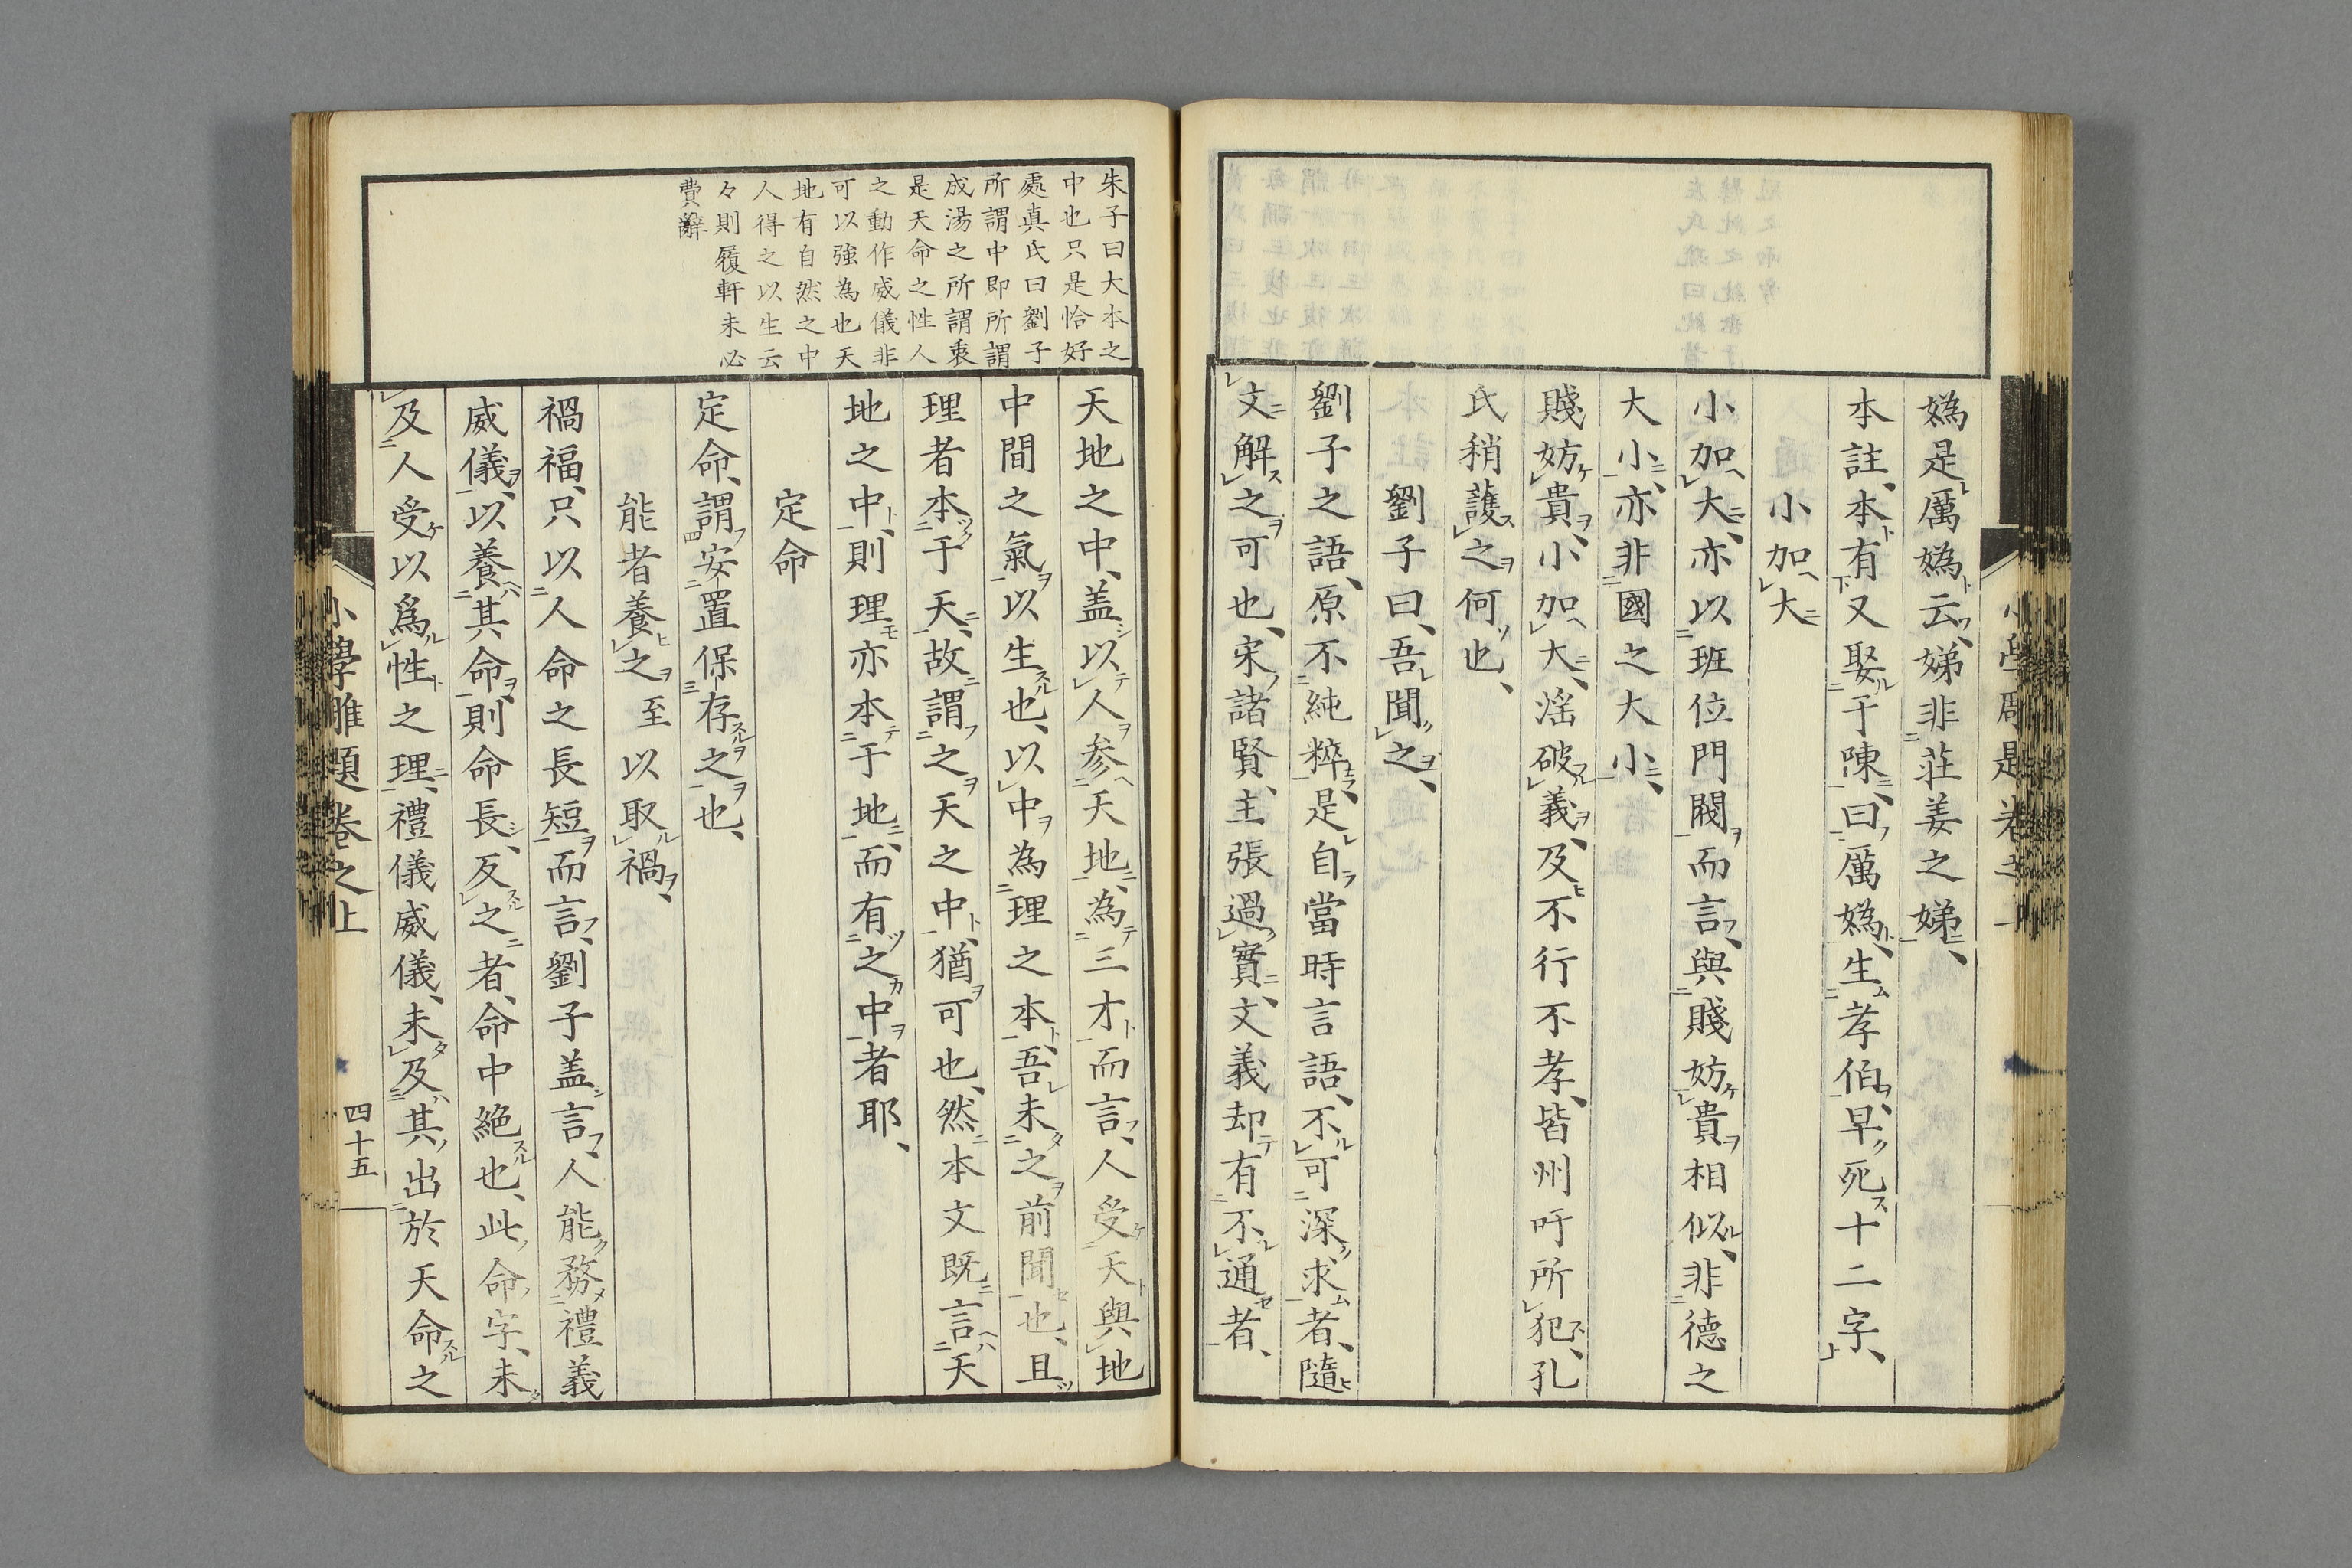 媯是厲媯云、娣非莊姜之娣、
本註、本有又娶于陳、曰厲媯、生孝伯、早死十二字、
小加大
小加大、亦以班位門閥而言、與賤妨貴相似、非德之
大小、亦非國之大小、
賤妨貴、小加大、滛破義、及不行不孝、皆州吁所犯、孔
氏稍護之何也、
劉子曰、吾聞之、
劉子之語、原不純粹、是自當時言語、不可深求者、隨
文解之可也、宋諸賢、主張過實、文義却有不通者、
朱子曰大本之
中也只是恰好
處真氏曰劉子
所謂中即所謂
成湯之所謂衷
是天命之性人
之動作威儀非
可以強為也天
地有自然之中
人得之以生云
々則履軒未必
費辭
天地之中、盖以人参天地、為三才而言、人受天與地
中間之氣以生也、以中為理之本、吾未之前聞也、且
理者本于天、故謂之天之中、猶可也、然本文既言天
地之中、則理亦本于地、而有之中者耶、
定命
定命、謂安置保存之也、
能者養之至以取禍、
禍福、只以人命之長短而言、劉子盖言、人能務禮義
威儀、以養其命、則命長、反之者、命中絶也、此命字、未
及人受以爲性之理、禮儀威儀、未及其出於天命之
小學雕題卷之上
四十五